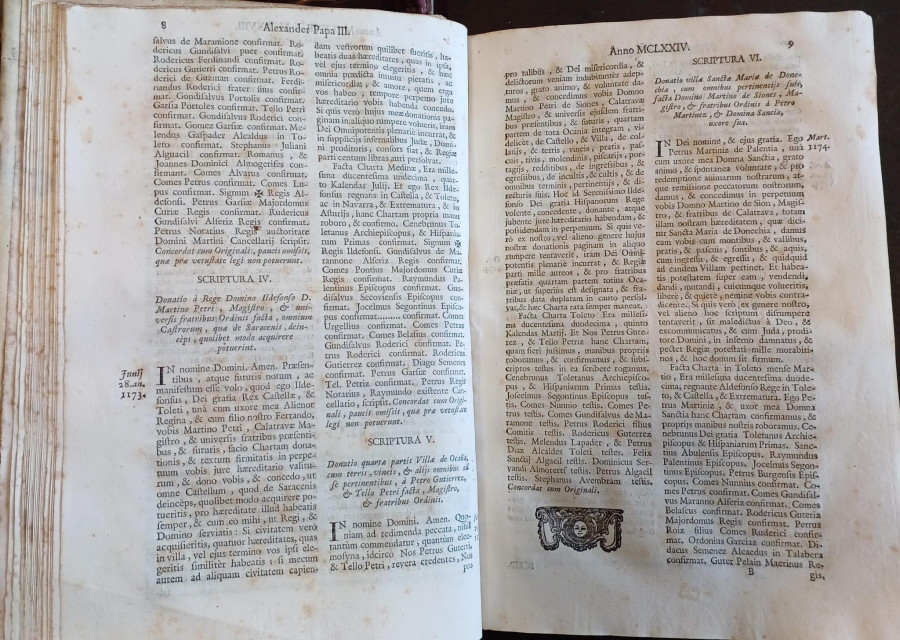 8
Alexander Papa III.
salvus de Maramione confirmat. Ro-
dericus Gundisalvi puer confirmat.
Rodericus Ferdinandi confirmat. Ro-
dericus Gutierri confirmat. Petrus Ro-
derici de Guzman confirmat. Ferdi-
nandus Roderici frater suus confir-
mat. Gondisalvus Portolis confirmat.
Garsia Portoles confirmat. Tello Petri
confirmat. Gondisalvus Roderici con-
firmat. Gomez Garsiæ confirmat. Me-
lendus Gaspader Alcaldus in To-
leto confirmat. Stephanus Juliani
Alguacil confirmat. Romanus, &
Joannes Dominici Almogerifes con-
firmant. Comes Alvarus confirmat.
Comes Petrus confirmat. Comes Lu-
pus confirmat. Signum ✠ Regis Al-
defonsi. Petrus Garsiæ Majordomus
Curiæ Regis confirmat. Rudericus
Gundisalvi Alferiz Regis confirmat.
Petrus Notarius Regis auctoritate
Domini Martini Cancellarij scripsit.
Concordat cum Originali, paucis omissis,
quæ præ vetustate legi non potuerunt.
SCRIPTURA IV.
Donatio à Rege Domino Ildefonso D.
Martino Petri, Magistro, & uni-
versis fratribus Ordinis facta, omnium
Castrorum, quæ de Saracenis dein-
ceps quolibet modo acquirere
potuerint.
Junij
28. an.
1173.
IN nomine Domini. Amen. Præsen-
tibus, atque futuris notum, ac
manifestum esse volo, quod ego Ilde-
fonsus, Dei gratia Rex Castellæ, &
Toleti, unà cum uxore mea Alienor
Regina, & cum filio nostro Ferrando,
vobis Martino Petri, Calatravæ Ma-
gistro, & universis fratribus præsenti-
bus, & futuris, facio Chartam dona-
tionis, & textum firmitatis in perpe-
tuum vobis jure hæreditario valitu-
rum, & dono vobis, & concedo, ut
omne Castellum, quod de Saracenis
deincèps, quolibet modo acquirere po-
tueritis, pro hæreditate illud habeatis
semper, & cum eo mihi, ut Regi, &
Domino serviatis: Si civitatem verò
acquisieritis, quatuor hæreditates, quas
in villa, vel ejus termino vos ipsi ele-
geritis similitèr habeatis; si mecum
autem ad aliquam civitatem capien-
dam vestrorum quilibet fueritis, ha-
beatis duas hæreditates, quas in ipsa,
vel ejus termino elegeritis, & hæc
omnia prædicta intuitu pietatis, ac
misericordiæ, & amore, quem erga
vos habeo, tempore perpetuo jure
hæreditario vobis habenda concedo.
Si quis verò hujus meæ donationis pa-
ginam in aliquo rumpere voluerit, iram
Dei Omnipotentis plenariè incurrat, &
in supplicijs infernalibus Judæ, Domi-
ni proditoris, consors fiat, & Regiæ
parti centum libras auri persolvat.
Facta Charta Medinæ, Era mille-
sima ducentesima undecima, quar-
to Kalendas Julij. Et ego Rex Ilde-
fonsus regnans in Castella, & Toleto,
ac in Navarra, & Extrematura, & in
Asturijs, hanc Chartam propria manu
roboro, & confirmo. Cenebrunus To-
letanus Archiepiscopus, & Hispania-
rum Primas confirmat. Signum ✠
Regis Ildefonsi. Gundisalvus de Ma-
rannone Alferiz Regis confirmat.
Comes Pontius Majordomus Curiæ
Regis confirmat. Raymundus Pa-
lentinus Episcopus confirmat. Gun-
disalvus Secoviensis Episcopus con-
firmat. Jocelmus Segontinus Episco-
pus confirmat. ...... confirmat. Comes
Urgellius confirmat. Comes Petrus
confirmat. Comes Belasus confirmat.
Gundisalvus Roderici confirmat. Pe-
trus Roderici confirmat. Rodericus
Gutierrez confirmat. Diago Semenez
confirmat. Petrus Garsiæ confirmat.
Tel. Petriz confirmat. Petrus Regis
Notarius, Raymundo existente Can-
cellario, scripsit. Concordat cum Origi-
nali, paucis omissis, quæ præ vetustate
legi non potuerunt.
SCRIPTURA V.
Donatio quartæ partis Villæ de Ocaña,
cum terris, vineis, & alijs omnibus ad
se pertinentibus, à Petro Gutierrez,
& Tello Petri facta, Magistro,
& fratribus Ordinis.
IN nomine Domini. Amen. Quo-
niam ad redimenda peccata, nihil
tantùm commendatur, quantùm elee-
mosyna, idcirco Nos Petrus Guterri,
& Tello Petri, revera credentes, Nos
pro
Anno MCLXXIV.
9
pro talibus, & Dei misericordia, &
delictorum veniam indubitantèr adep-
turos, grato animo, & voluntate da-
mus, & concedimus vobis Domno
Martino Petri de Siones, Calatravæ
Magistro, & universis ejusdem fratri-
bus præsentibus, & futuris, quartam
partem de tota Ocania integram, vi-
delicèt, de Castello, & Villa, de col-
latijs, & terris, vineis, pratis, pas-
cuis, rivis, molendinis, piscarijs, por-
tagijs, redditibus, de ingressibus, &
egressibus, de incultis, & cultis, & de
omnibus terminis, pertinentijs, & di-
recturis suis: Hoc id Serenissimo Ilde-
fonso Dei gratia Hispanorum Rege
volente, concedente, donante, atque
jubente jure hæreditario habendam, &
possidendam in perpetuum. Si quis ve-
rò ex nostro, vel alieno genere hujus
nostræ donationis paginam in aliquo
rumpere tentaverit, iram Dei Omni-
potentis plenariè incurrat, & Regiæ
parti mille aureos, & pro fratribus
præfatis quartam partem totius Oca-
niæ, ut superiùs est designata, & fra-
tribus data duplatum in cauto persol-
vat, & hæc Charta rata semper maneat.
Facta Charta Toleto Era millesi-
ma ducentesima duodecima, quinto
Kalendas Martij. Et Nos Petrus Gutie-
rez, & Tello Petriz hanc Chartam,
quam fieri jussimus, manibus proprijs
roboramus, & confirmamus, & subs-
criptos testes in ea scribere rogamus.
Cenebrunus Toletanus Archiepisco-
pus, & Hispaniarum Primas testis.
Joscelmus Segontinus Episcopus tes-
tis. Comes Nunnio testis. Comes Pe-
trus testis. Comes Gundisalvus de Ma-
ramone testis. Petrus Roderici filius
Comitis testis. Rodericus Guterrez
testis. Melendus Lapader, & Petrus
Diaz Alcaldes Toleti testes. Felix
Sanctij Alguacil testis. Dominicus Ser-
vandi Almogerri testis. Petrus Algacil
testis. Stephanus Avembram testis.
Concordat cum Originali.
SCRIPTURA VI.
Donatio villæ Sanctæ Mariæ de Done-
chia, cum omnibus pertinentijs suis,
facta Domino Martino de Siones, Ma-
gistro, & fratribus Ordinis à Petro
Martinez, & Domina Sancia,
uxore sua.
Mart.
1174.
IN Dei nomine, & ejus gratia. Ego
Petrus Martiniz de Palentia, unà
cum uxore mea Domna Sanctia, grato
animo, & spontanea voluntate, & pro
redemptione animarum nostrarum, at-
que remissione peccatorum nostrorum,
damus, & concedimus in perpetuum
vobis Domno Martino de Sion, Magis-
tro, & fratribus de Calatrava, totam
illam nostram hæreditatem, quæ dici-
tur Sancta Maria de Donechia, damus
eam vobis cum montibus, & vallibus,
pratis, & pascuis, fontibus, & aquis,
cum ingressu, & egressu, & quidquid
ad eandem Villam pertinet. Et habeatis
potestatem super eam, vendendi,
dandi, mutandi, cuicumque volueritis,
liberè, & quietè, nemine vobis contra-
dicente. Si quis verò ex genere nostro,
vel alieno hoc scriptum disrumpere
tentaverit, sit maledictus à Deo, &
excommunicatus, & cum Juda, prodi-
tore Domini, in inferno damnatus, &
pectet Regiæ potestati mille morabiti-
nos, & hoc donum sit firmum.
Facta Charta in Toleto mense Mar-
tio, Era millesima ducentesima duode-
cima, regnante Aldefonso Rege in Tole-
to, & Castella, & Extrematura. Ego Pe-
trus Martiniz, & uxor mea Domna
Sanctia hanc Chartam confirmamus, &
proprijs manibus nostris roboramus. Ce-
nebrunus Dei gratia Toletanus Archie-
piscopus & Hispaniarum Primas. Sanc-
tius Abulensis Episcopus. Raymundus
Palentinus Episcopus. Jocelmus Segon-
tinus Episcopus. Petrus Burgensis Epif-
copus. Comes Nunnius confirmat. Co-
mes Petrus confirmat. Comes Gundisal-
vus Maranno Alferiz confirmat. Comes
Belascus confirmat. Rodericus Guteria
Majordomus Regis confirmat. Petrus
Roiz filius Comes Ruderici confir-
mat. Ordonius Garciaz confirmat. Di-
dacus Semenez Alcaedus in Talabera
confirmat. Guter Pelain Maetinus Re-
B
gis,